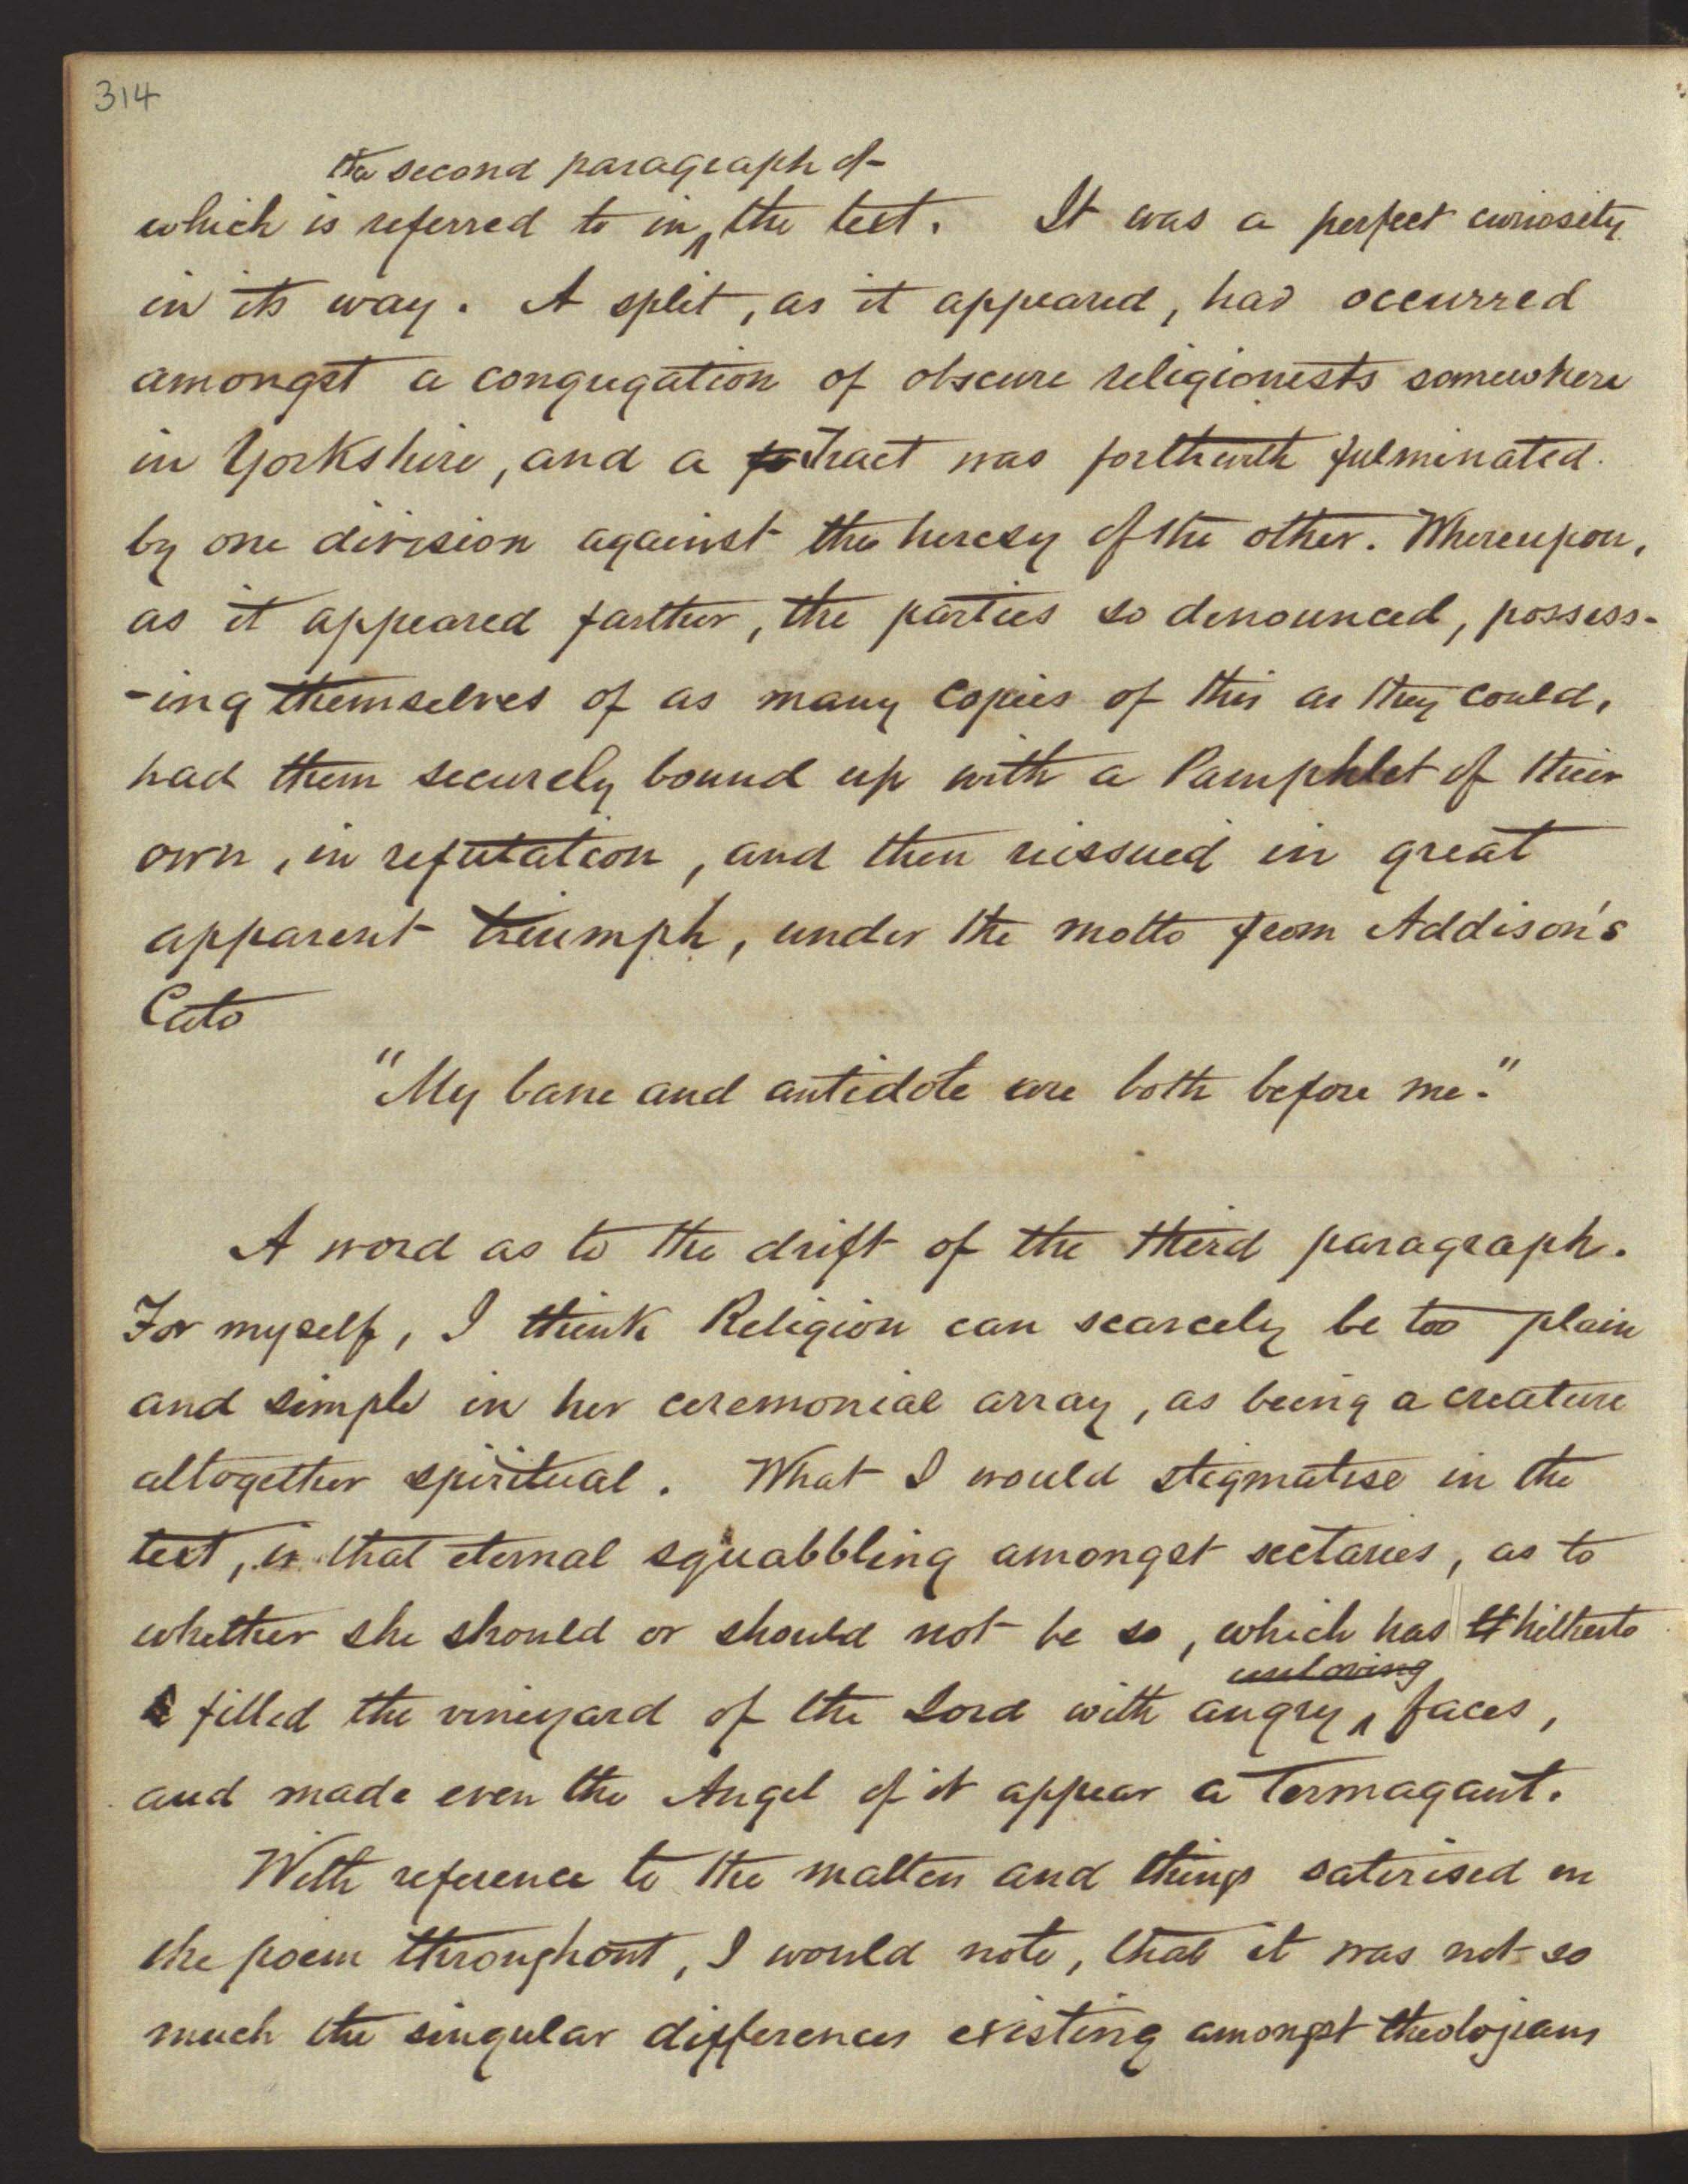 314
the second paragraph of
which is referred to in the text. It was a perfect curiosity
in its way. A split, as it appeared, had occurred
amongst a congregation of obscure religionists somewhere
in Yorkshire, and a Tract was forthwith fulminated
by one division against the heresy of the other. Whereupon,
as it appeared farther, the parties so denounced, possess-
-ing themselves of as many copies of this as they could,
had them securely bound up with a Pamphlet of their
own, in refutation, and then reissued in great
apparent triumph, under the motto from Addison's
Cato
"My bane and antidote are both before me."
A word as to the drift of the third paragraph.
For myself, I think Religion can scarcely be too plain
and simple in her ceremonial array, as being a creature
altogether spiritual. What I would stigmatise in the
text, is that eternal squabbling amongst sectaries, as to
whether she should or should not be so, which has hitherto
unloving
filled the vineyard of the Lord with angry faces,
and made even the Angel of it appear a Termagant.
With reference to the matters and things satirised in
the poem throughout, I would note, that it was not so
much the singular differences existing amongst theologians